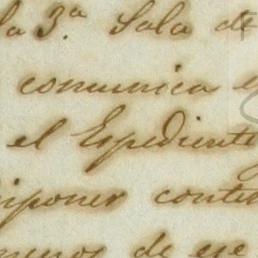 la 3.ª Sala de
comunica e
el Espediente
iponer conte
menos de ese